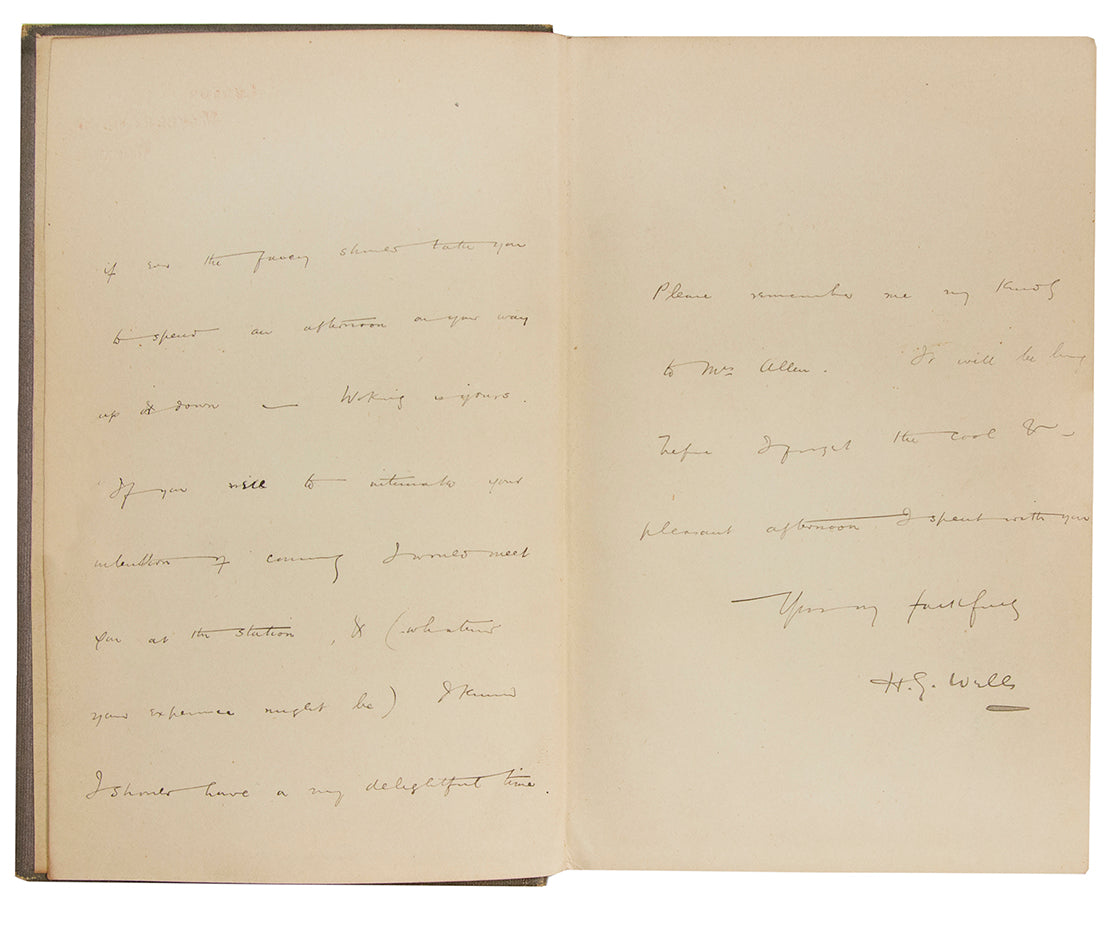 if ever the fancy should take you
to spend an afternoon on your way
up & down — Woking is yours.
If you will to intimate your
intention of coming I would meet
you at the station, & (whatever
your experience might be) I know
I should have a very delightful time.
Please remember me very kindly
to Mrs Allen. It will be long
before I forget the cool &
pleasant afternoon I spent with you
Yours very faithfully
H. G. Wells